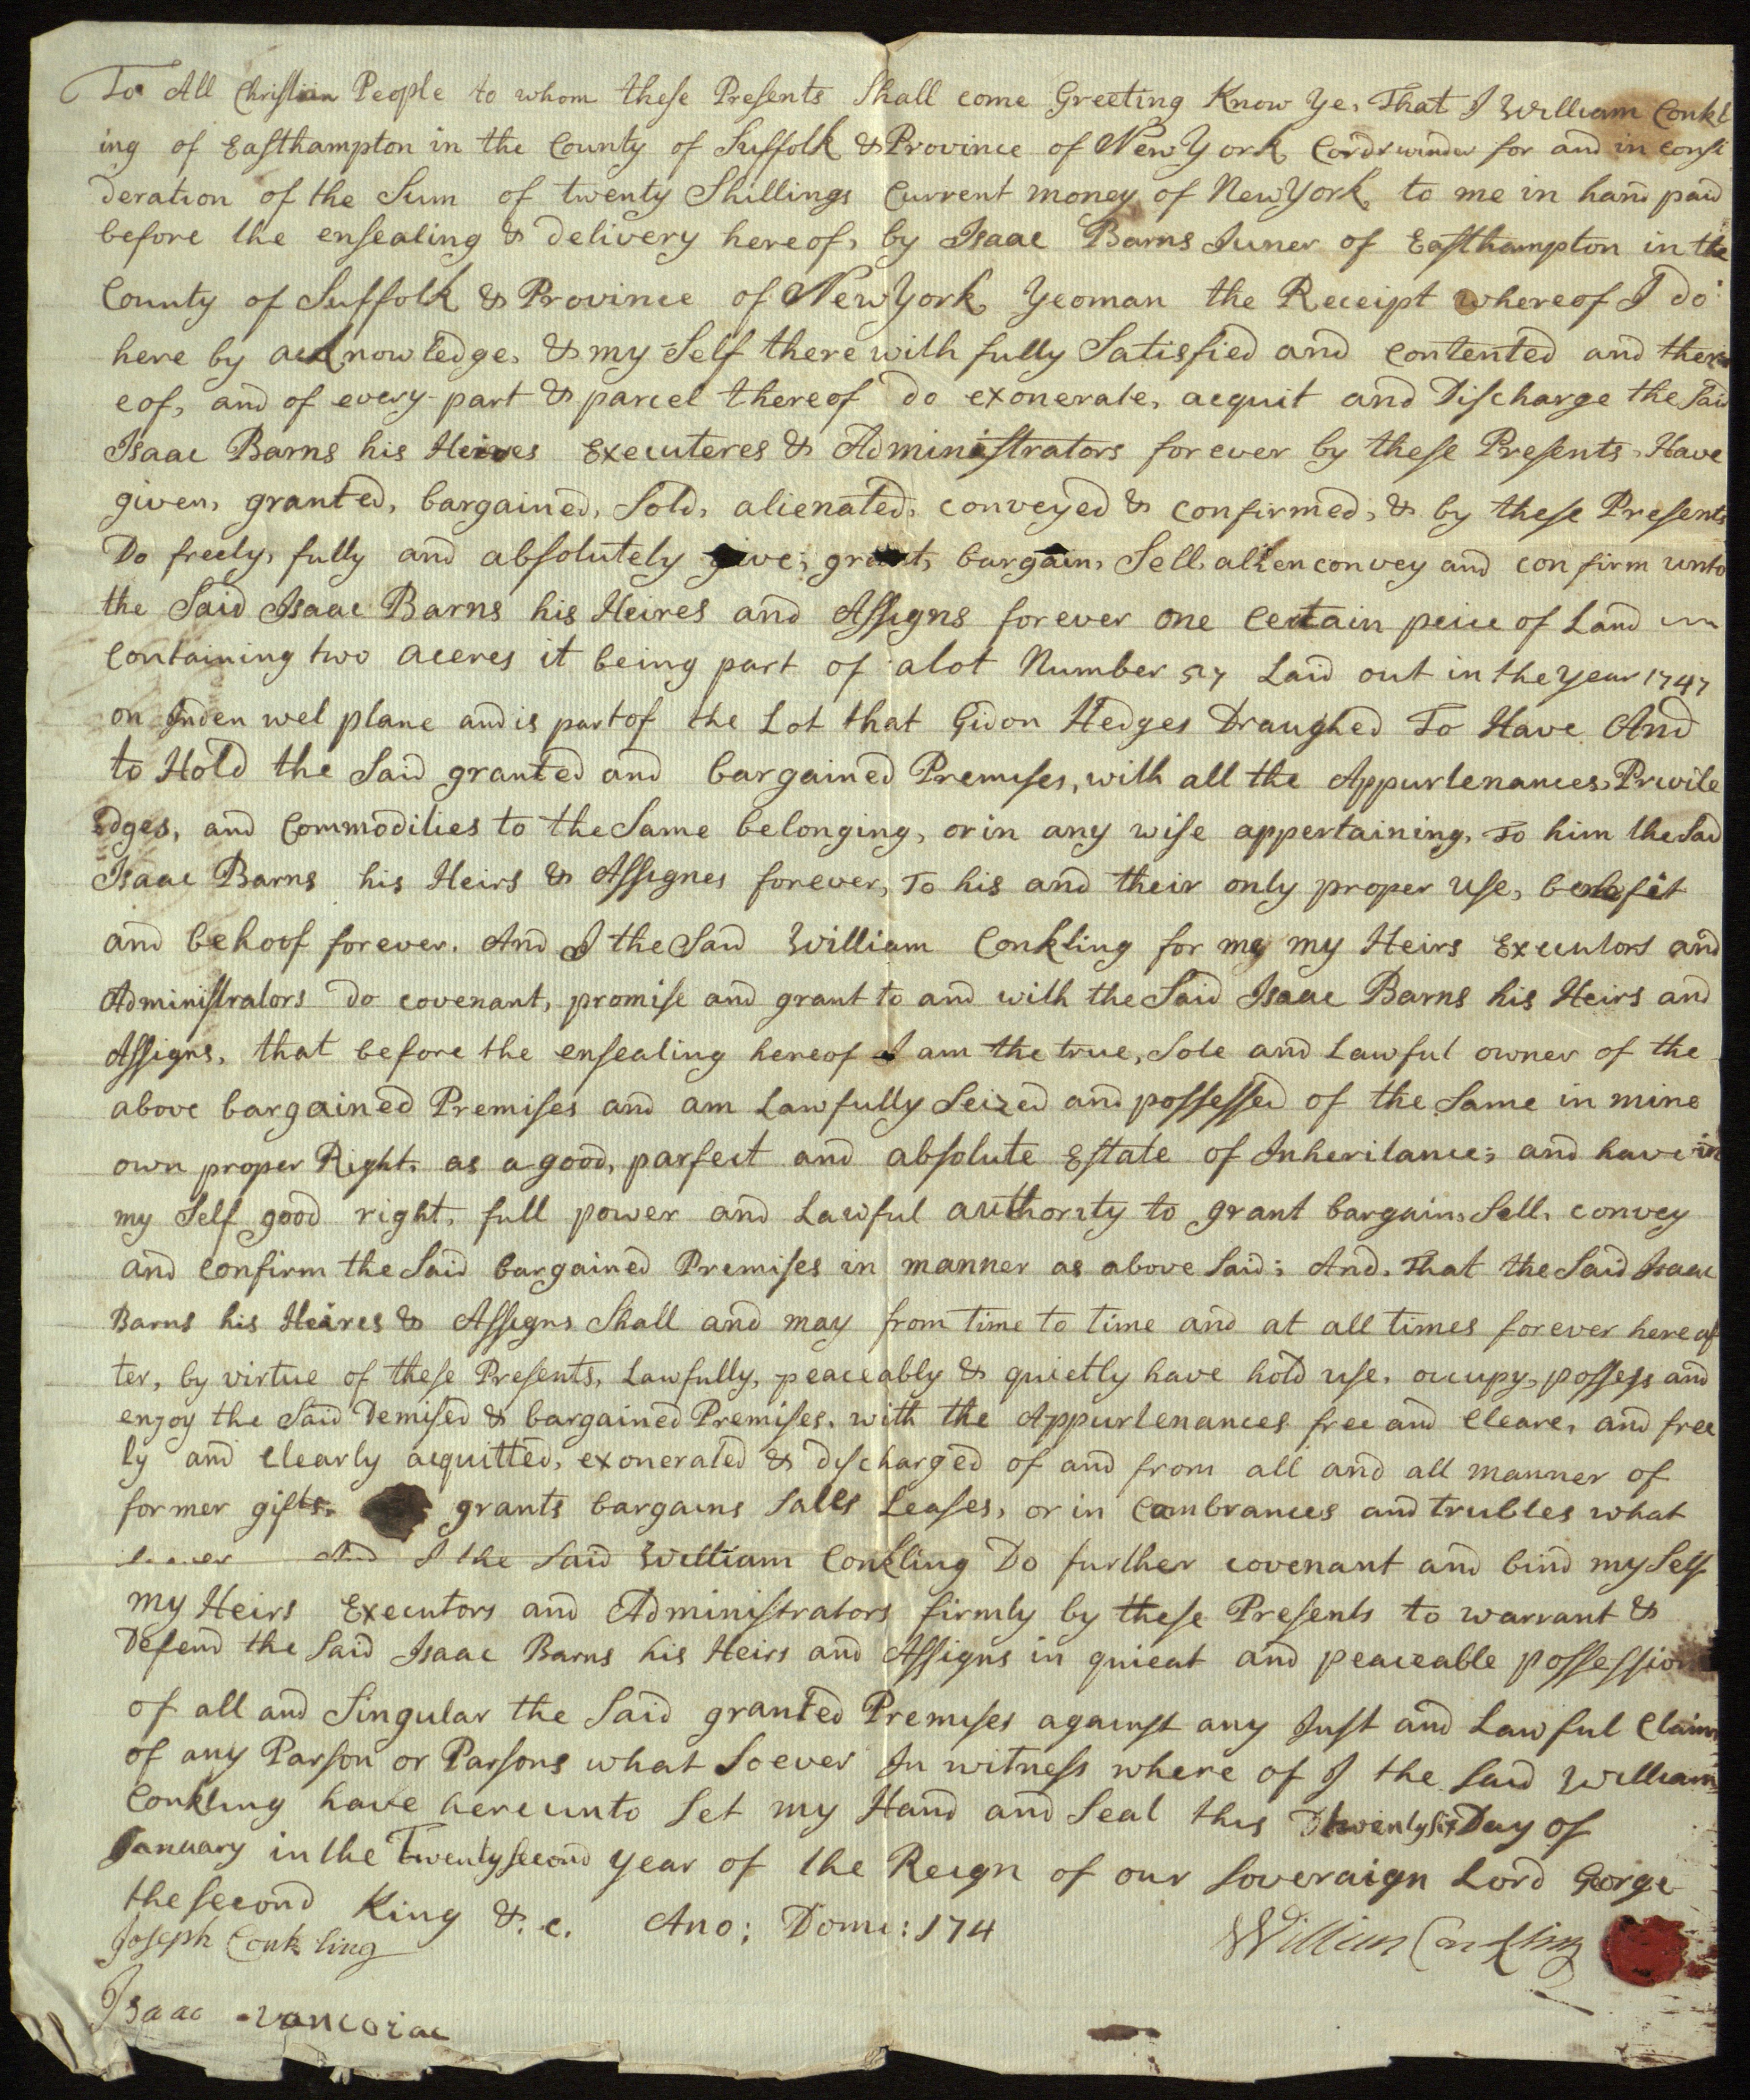 To All Christian People to whom these Presents Shall come Greeting Know Ye, That I William Conkl
ing of Easthampton in the County of Suffolk & Province of New York Cordrwinder for and in consi
deration of the Sum of twenty Shillings Current money of New York, to me in hand paid
before the ensealing & Delivery hereof, by Isaac Barns Juner of Easthampton in the
County of Suffolk & Province of New York, Yeoman the Receipt whereof I do
here by acknowledge, & my Self there with fully Satisfied and contented and ther
eof, and of every part & parcel thereof Do exonerate, acquit and Discharge the Said
Isaac Barns his Heires Executeres & Administrators for ever by these Presents, Have
given, granted, bargained, Sold, alienated, conveyed & confirmed, & by these Presents
Do freely, fully and absolutely give, grant, bargain, Sell, alien convey and confirm unto
the Said Isaac Barns his Heires and Assigns forever one Certain peice of Land
Containing two aceres it being part of a lot Number 57 Laid out in the Year 1747
on Inden wel plane and is part of the Lot that Gidon Hedges Draughed To Have And
to Hold the Said granted and bargained Premises, with all the Appurtenances, Privile
edges, and Commodities to the Same belonging, or in any wise appertaining, To him the Said
Isaac Barns his Heirs & Assignes forever, To his and their only proper use, benefit
and behoof forever. And I the Said William Conkling for me my Heirs Executors and
Administrators do covenant, promise and grant to and with the Said Isaac Barns his Heirs and
Assigns, that before the ensealing hereof I am the true, Sole and Lawful owner of the
above bargained Premises and am Lawfully Seized and possessed of the Same in mine
own proper Right, as a good, parfect and absolute Estate of Inheritance; and have in
my Self good right, full power and Lawful authority to grant bargain, Sell, convey
and confirm the Said bargained Premises in manner as above Said; And, That the Said Isaac
Barns his Heires & Assigns Shall and may from time to time and at all times forever here af
ter, by virtue of these Presents, Lawfully, peaceably & quietly have hold use, occupy, possess and
enjoy the Said Demised & bargained Premises, with the Appurtenances free and Cleare, and free
ly and Clearly acquitted, exonerated & discharged of and from all and all manner of
former gifts, grants bargains Salls Leases, or in Combrances and trubles what
soever And I the Said William Conkling Do further covenant and bind my Self
my Heirs Executors and Administrators firmly by these Presents to warrant &
Defend the Said Isaac Barns his Heirs and Assigns in quieat and peaceable possession
of all and Singular the Said granted Premises against any Just and Lawful Claim
of any Parson or Parsons what Soever In witness where of I the Said William
Conkling have hereunto Set my Hand and Seal this twenty six Day of
January in the Twenty second year of the Reign of our Soveraign Lord George
the second King &.c. Ano; Domi: 174
Joseph Conkling William Conkling
Isaac